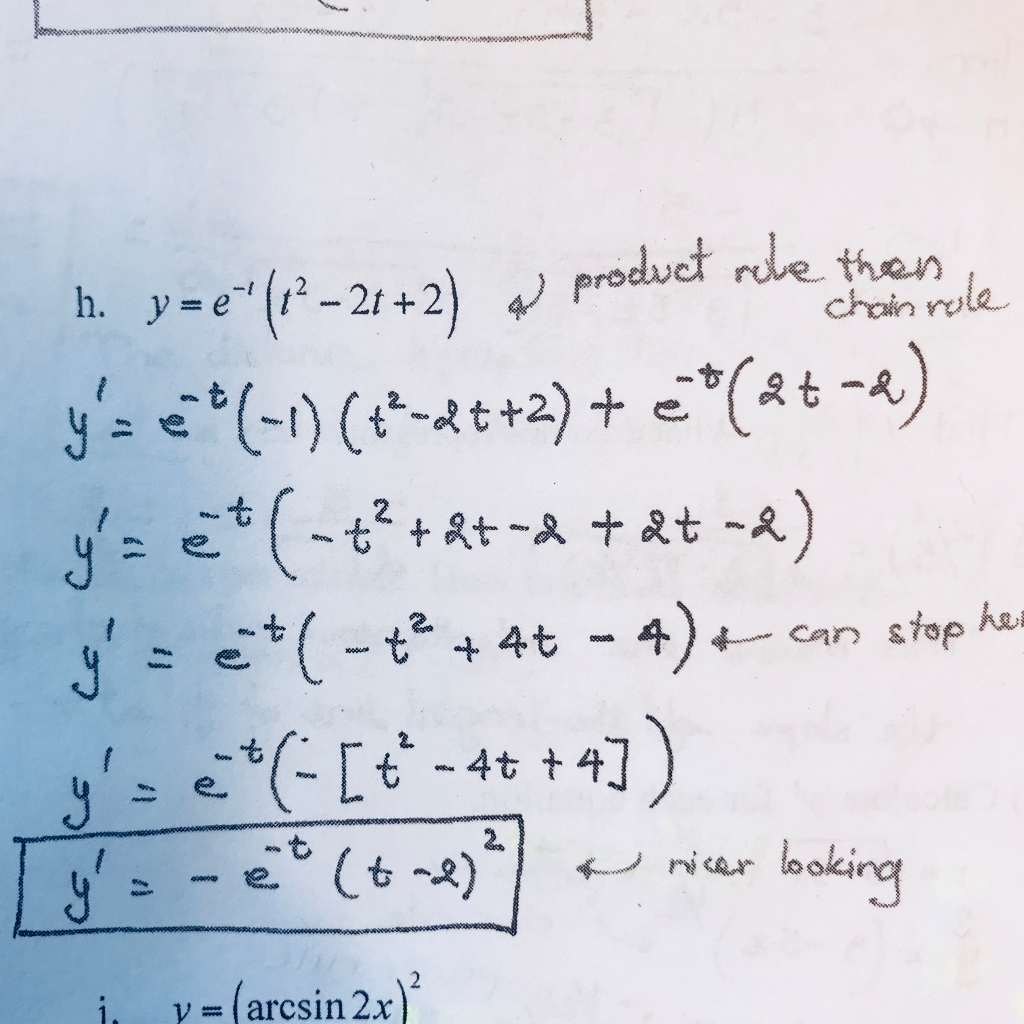 h. y = e⁻ᵗ (t² − 2t + 2) ↙ product rule then
chain rule
y' = e⁻ᵗ (−1) (t² − 2t + 2) + e⁻ᵗ (2t − 2)
y' = e⁻ᵗ (−t² + 2t − 2 + 2t − 2)
y' = e⁻ᵗ (−t² + 4t − 4) ← can stop her
y' = e⁻ᵗ (− [t² − 4t + 4])
y' = − e⁻ᵗ (t − 2)² ← nicer looking
i. y = (arcsin 2x)²